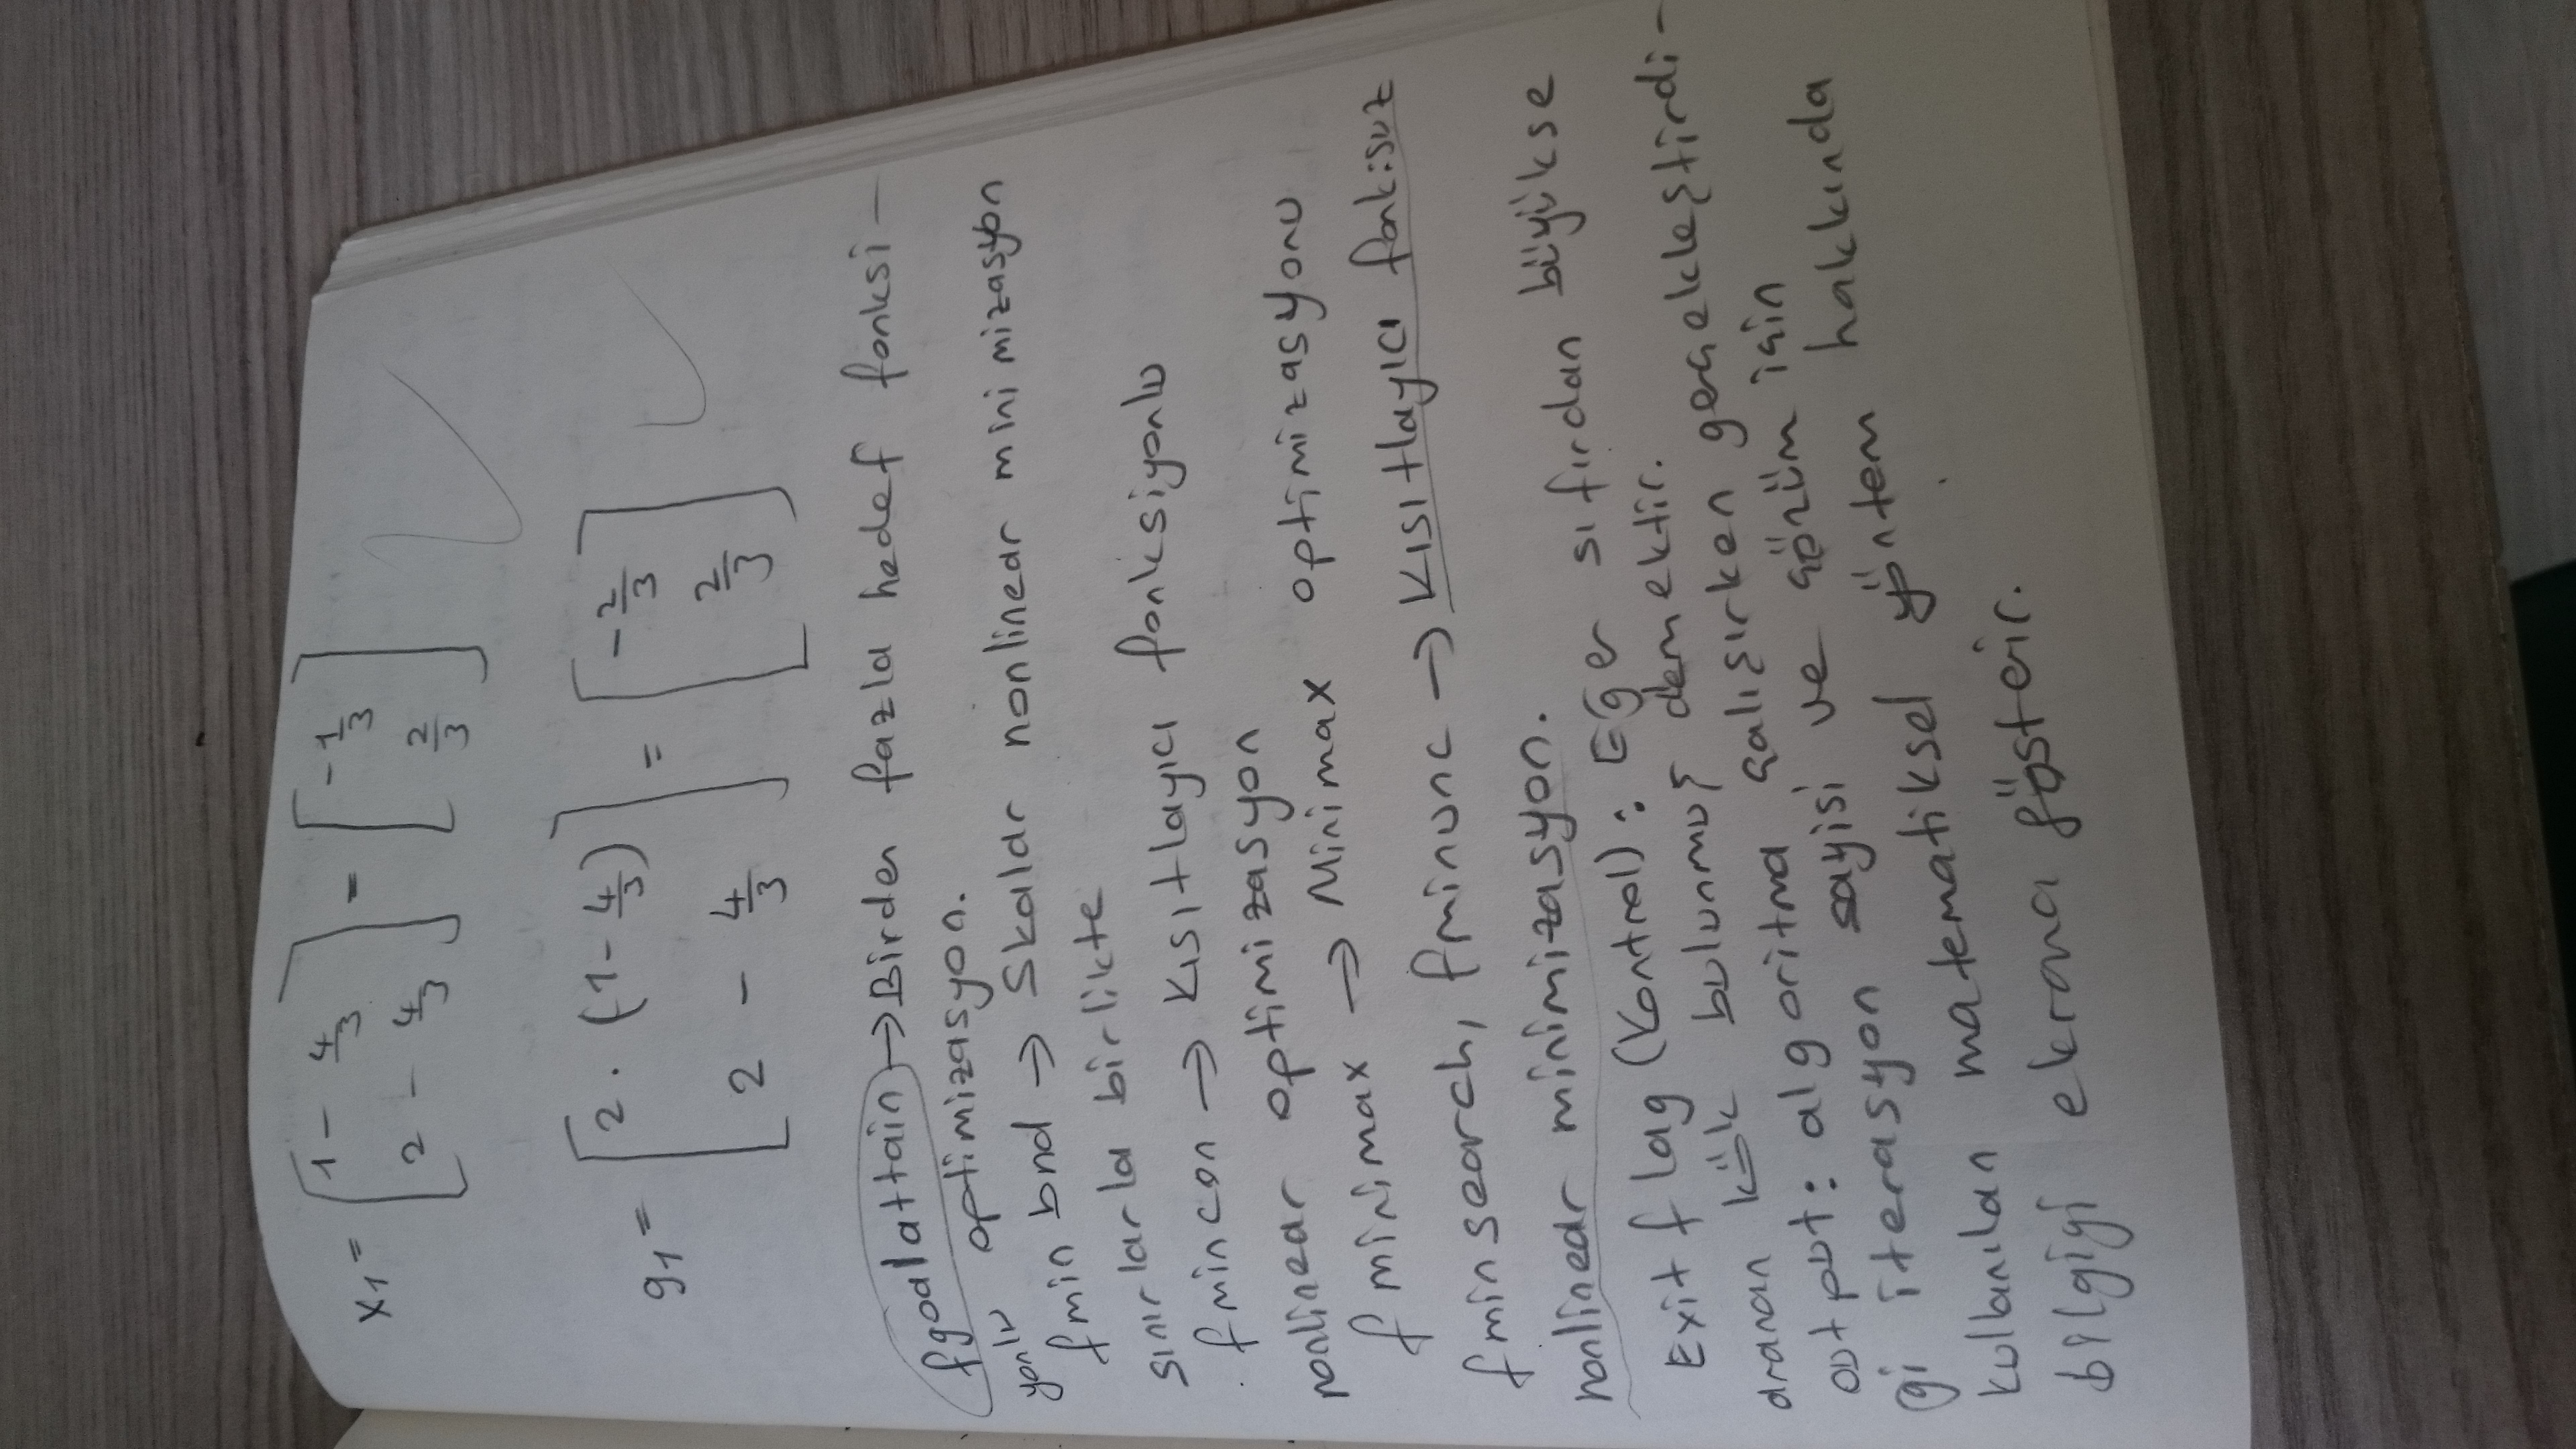 x₁ = [1 - 4/3 ; 2 - 4/3] = [-1/3 ; 2/3]
g₁ = [2 . (1 - 4/3) ; 2 - 4/3] = [-2/3 ; 2/3]
fgoalattain → Birden fazla hedef fonksi-
yonlu optimizasyon.
fmin bnd → Skalar nonlinear minimizasyon
sınırlarla birlikte
fmincon → Kısıtlayıcı fonksiyonlu
nonlinear optimizasyon
fminimax → Minimax optimizasyonu
fminsearch, fminunc → Kısıtlayıcı fonk:suz
nonlinear minimizasyon.
Exit flag (Kontrol) : Eğer sıfırdan büyükse
aranan kök bulunmuş demektir.
output : algoritma çalışırken gerçekleştirdi-
gi iterasyon sayisi ve çözüm için
kullanılan matematiksel yöntem hakkında
bilgiyi ekrana gösteir.